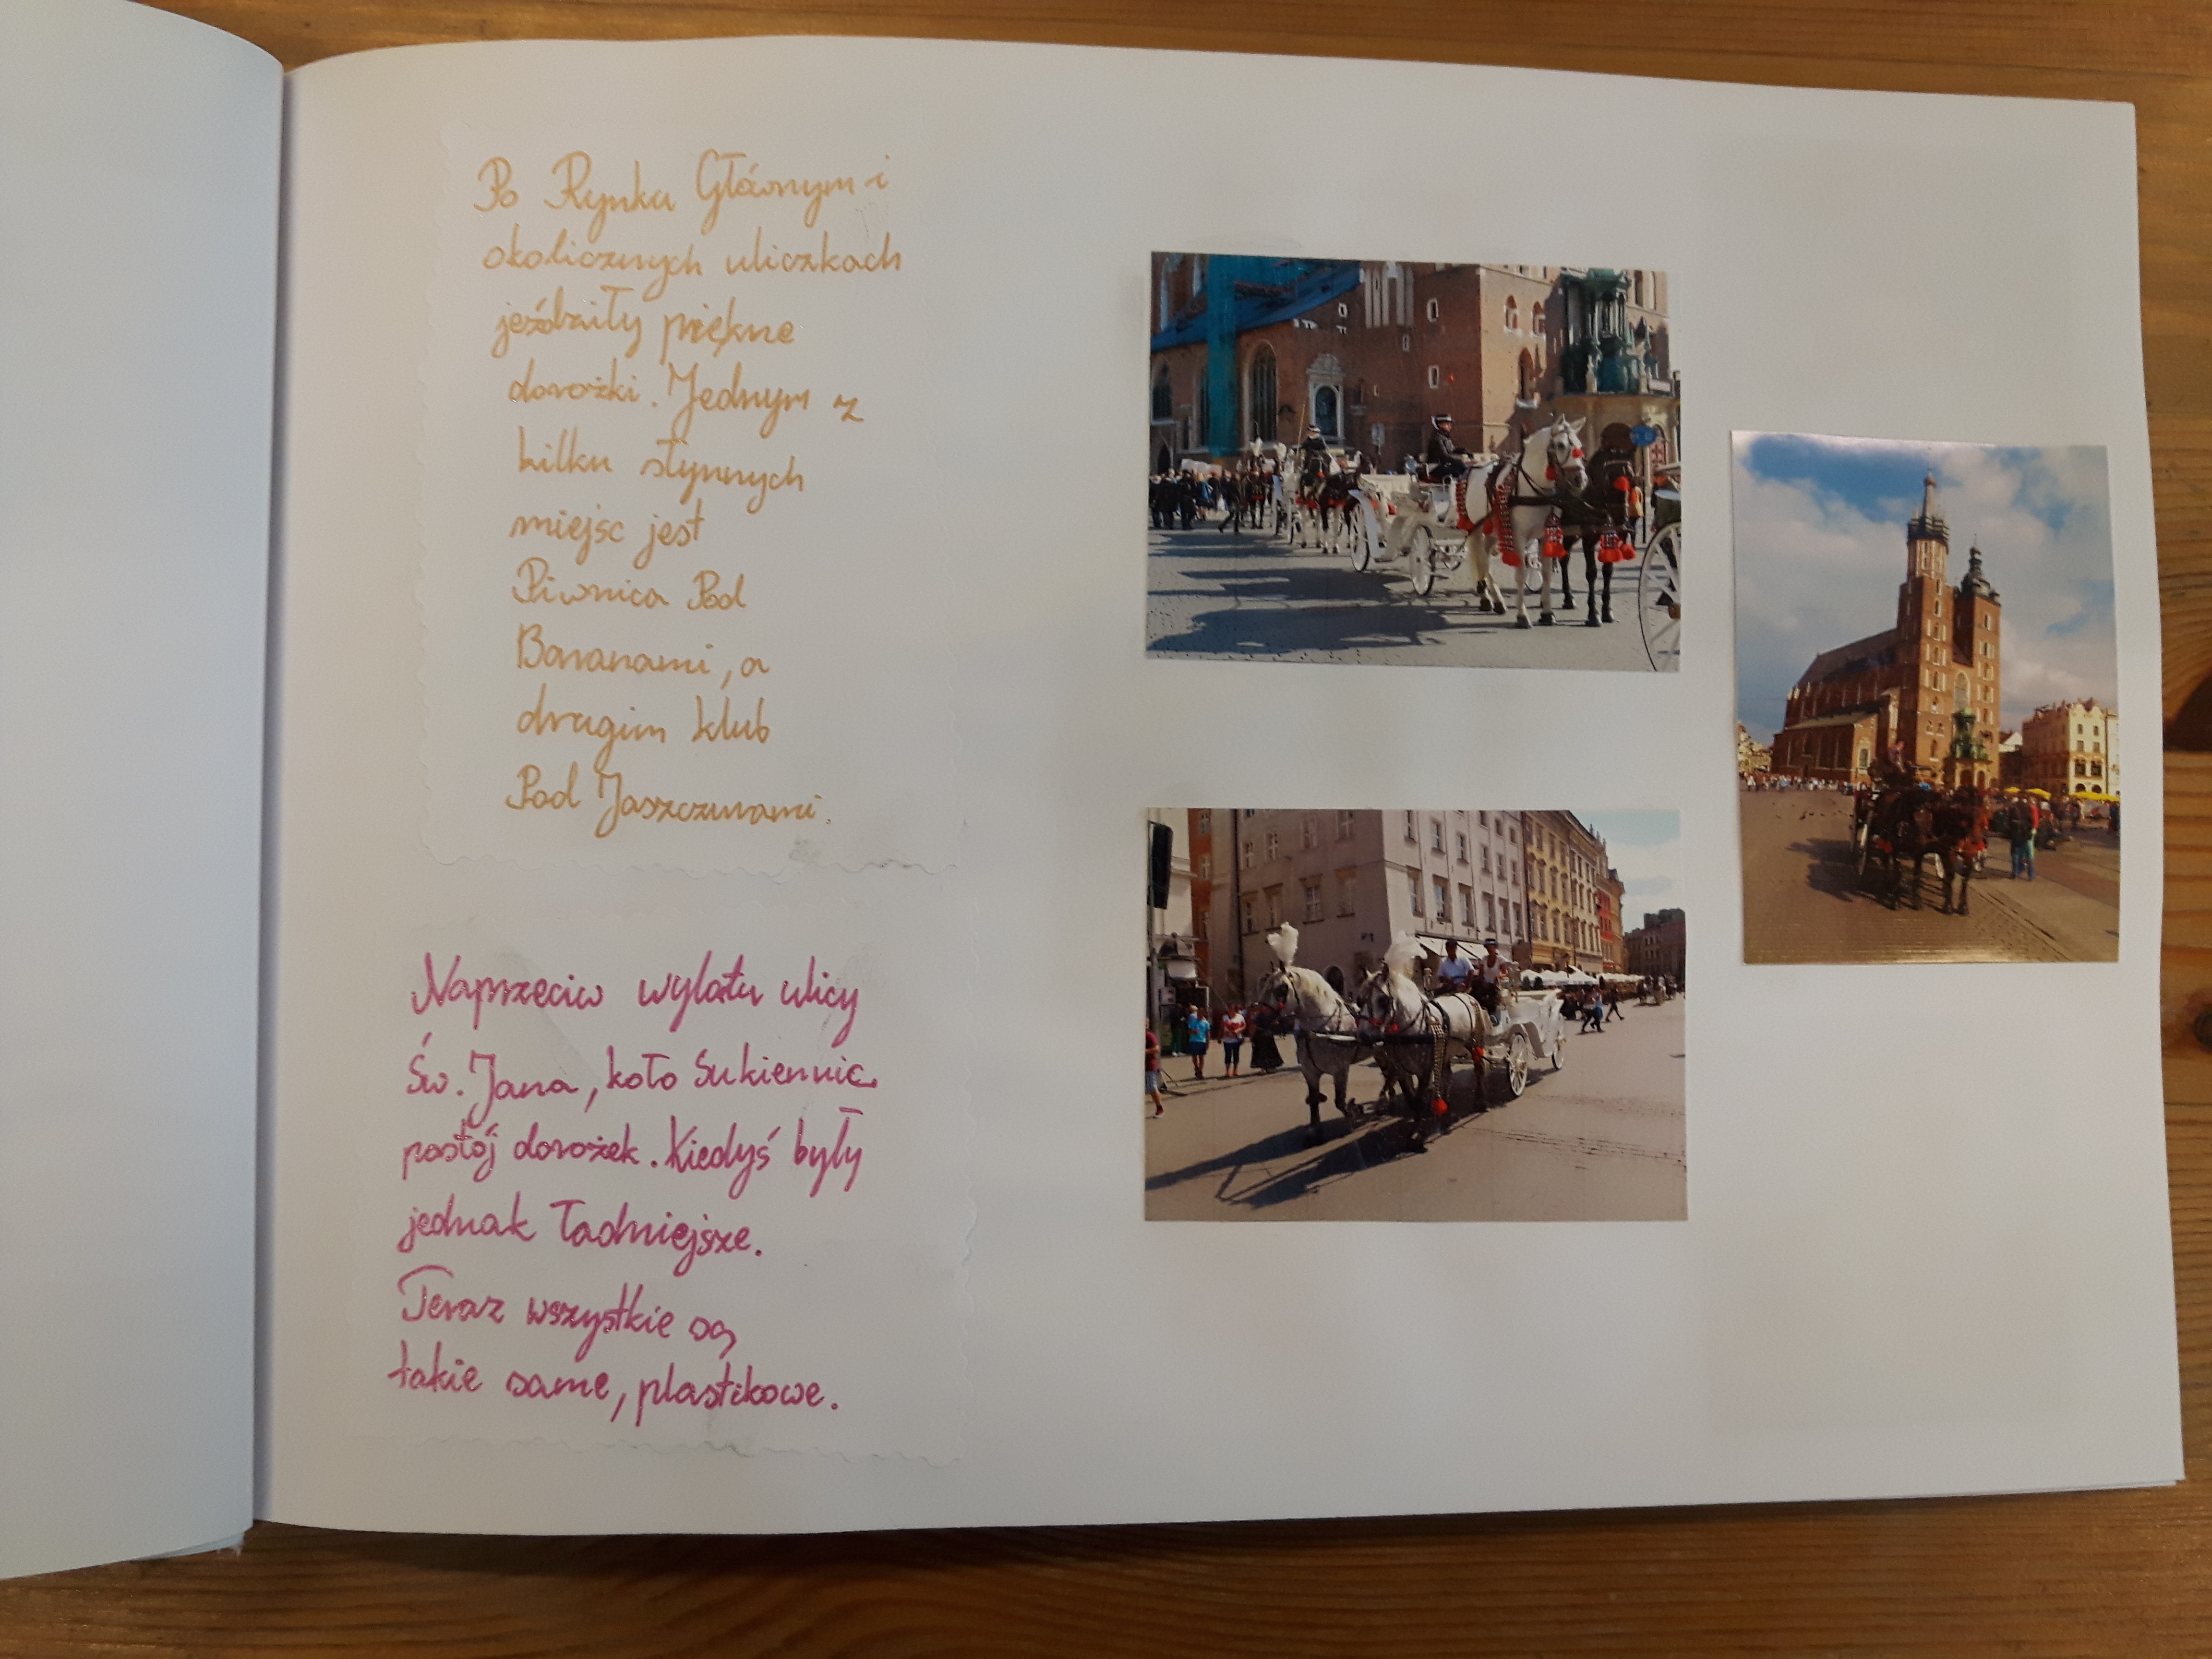 Po Rynku Głównym i
okolicznych uliczkach
jeździły piękne
dorożki. Jednym z
kilku słynnych
miejsc jest
Piwnica Pod
Baranami, a
drugim klub
Pod Jaszczurami.
Naprzeciw wylotu ulicy
Św. Jana, koło Sukiennic
postój dorożek. Kiedyś były
jednak ładniejsze.
Teraz wszystkie są
takie same, plastikowe.